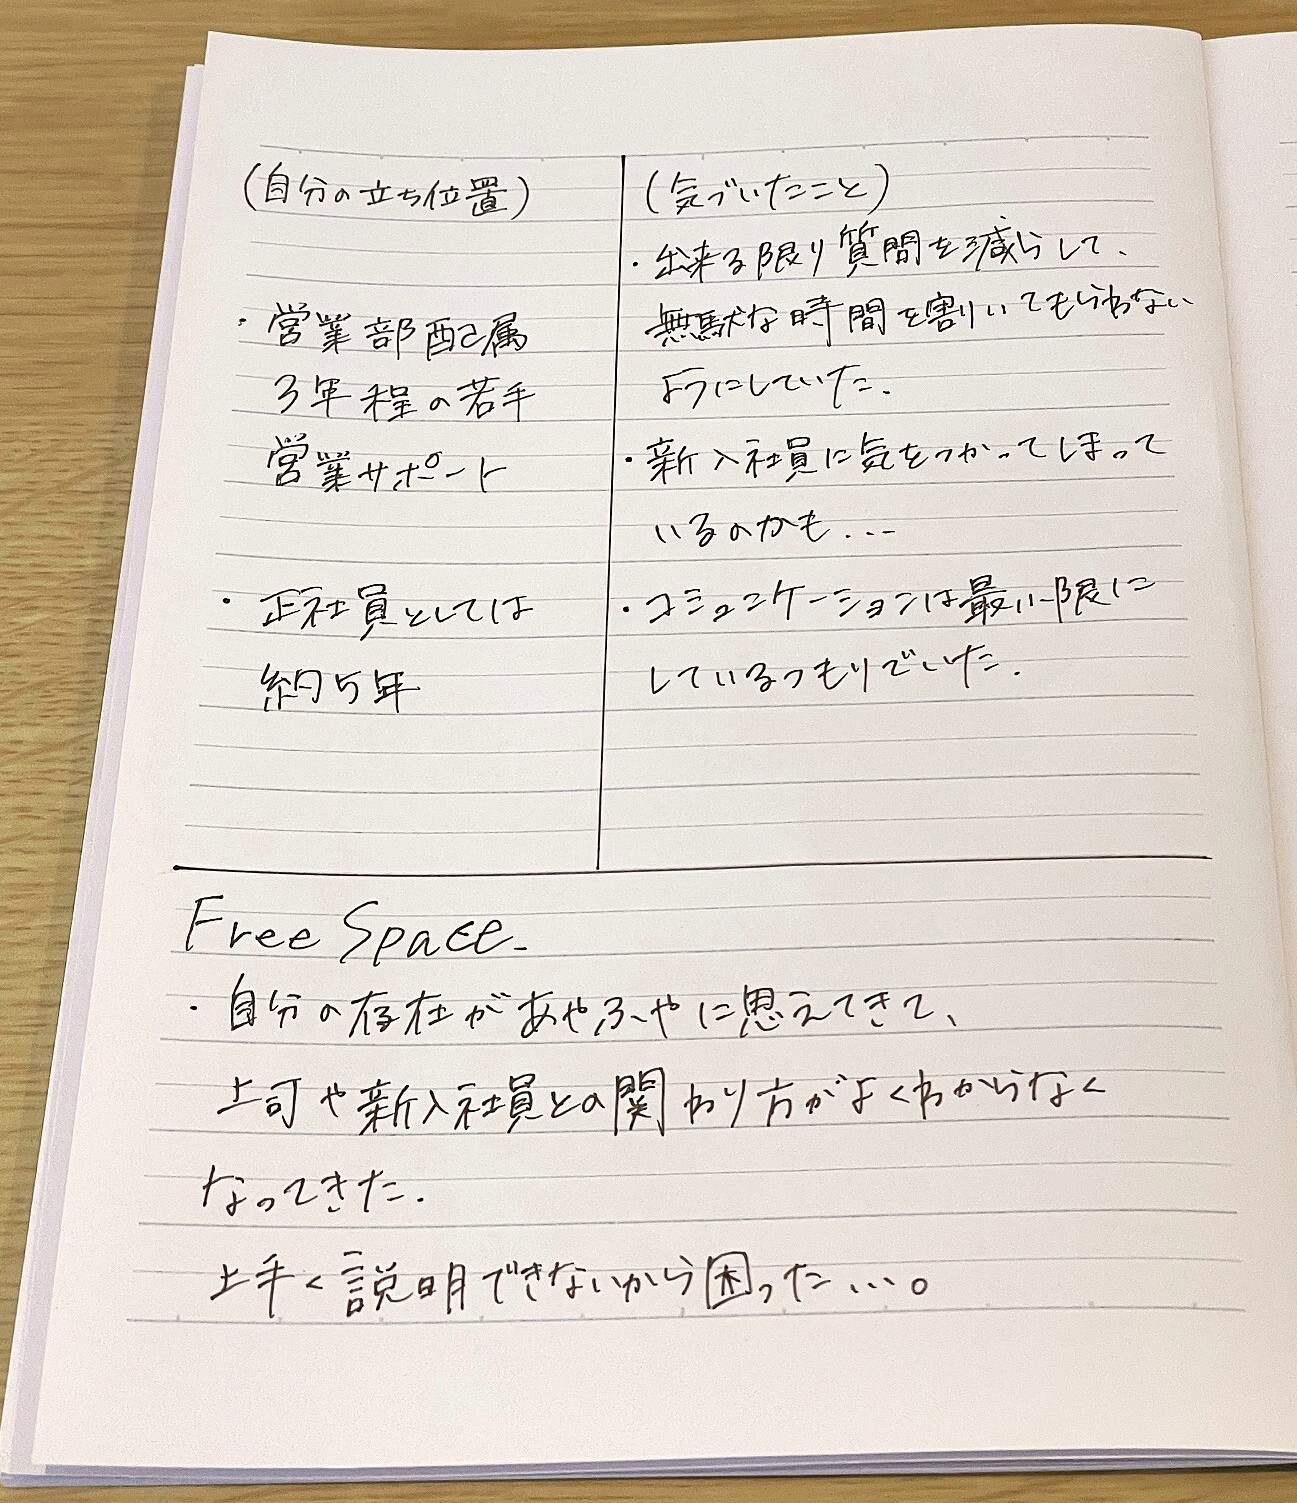 (自分の立ち位置)
・営業部配属
3年程の若手
営業サポート
・正社員としては
約5年
(気づいたこと)
・出来る限り質問を減らして、
無駄な時間を割いてもらわない
ようにしていた.
・新入社員に気をつかってしまって
いるのかも...
・コミュニケーションは最小限に
しているつもりでいた.
Free Space.
・自分の存在があやふやに思えてきて、
上司や新入社員との関わり方がよくわからなく
なってきた.
上手く説明できないから困った...。